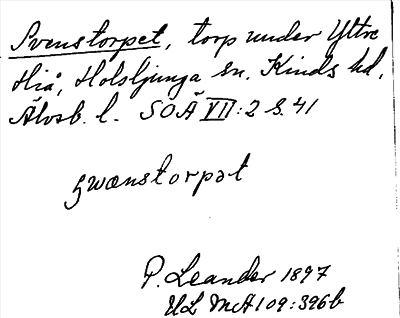 Svenstorpet, torp under Yttre
Hiå, Holsljunga sn. Kinds hd,
Älvsb. l. SOÄ VII:2 S. 41
svænstorpət
P. Leander 1897
ULMA 109:396b